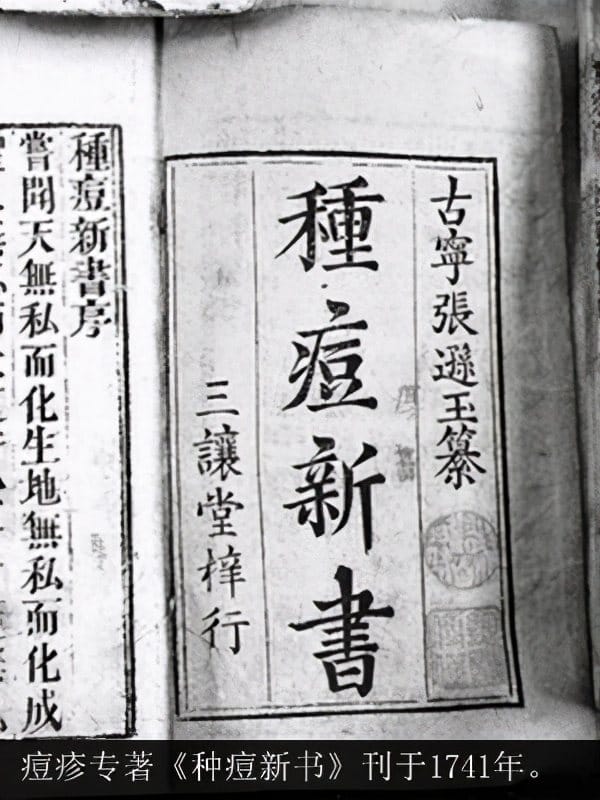 古寧張遜玉纂
種痘新書
三讓堂梓行
種痘新書序
嘗聞天無私而化生地無私而化成
痘疹专著《种痘新书》刊于1741年。